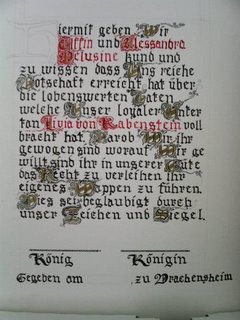 Hiermit geben Wir
Elffin und Alessandra
Melusine kund und
zu wissen dass Uns reiche
Botschaft erreicht hat über
die lobenswerten Taten
welche Unser loyaler Unter
tan Livia von Rabenstein voll
bracht hat. Darob Wir ihr
gewogen sind worauf Wir ge
willt sind ihr in unserer Güte
das Recht zu verleihen ein
eigenes Wappen zu führen.
Dies sei beglaubigt durch
unser Zeichen und Siegel.
König Königin
Gegeben am zu Drachensheim